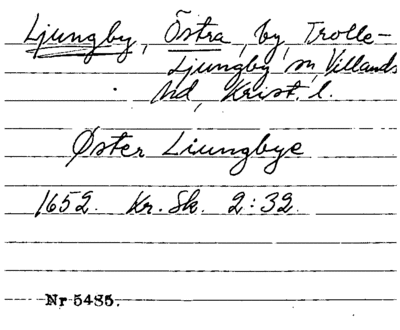 Ljungby, Östra, by, Trolle-
Ljungby sn, Villands
hd, Krist. l.
Øster Liungbye
1652. Kr. Sk. 2:32.
Nr 5485.